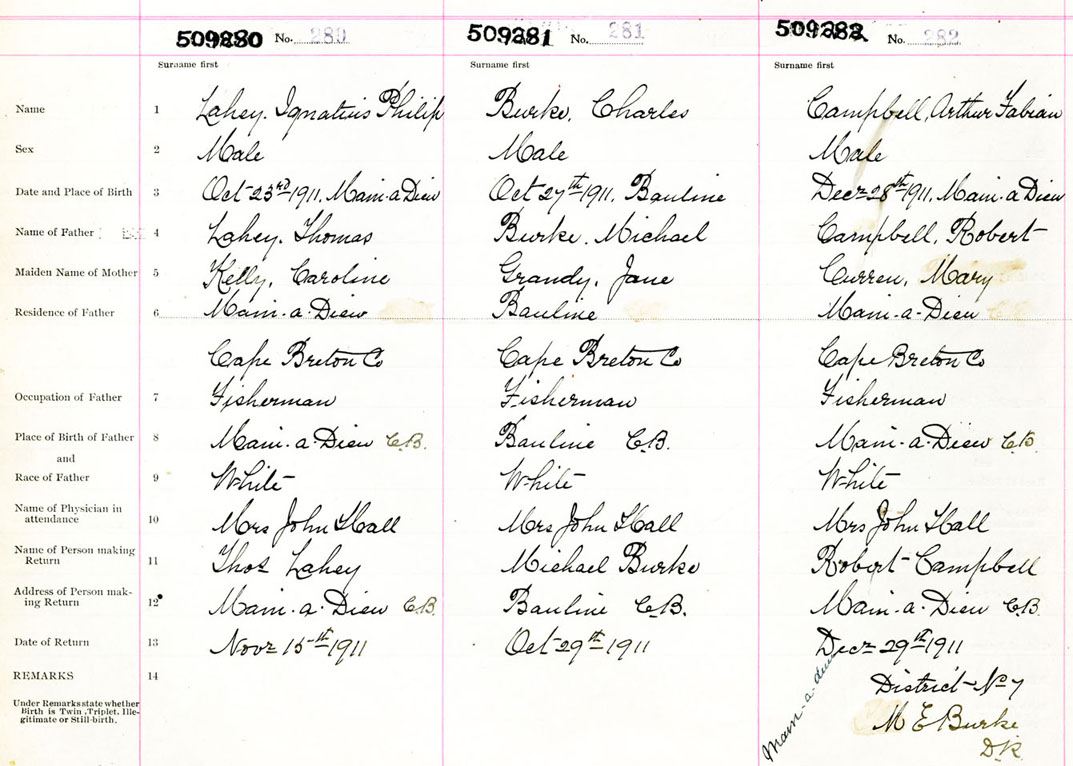 509280 No. 280 509281 No. 281 509282 No. 282
Surname first Surname first Surname first
Name 1 Lahey, Ignatius Philip Burke, Charles Campbell, Arthur Fabian
Sex 2 Male Male Male
Date and Place of Birth 3 Oct 23rd 1911, Main-a-Dieu Oct 27th 1911, Bauline Decr 28th 1911, Main-a-Dieu
Name of Father 4 Lahey, Thomas Burke, Michael Campbell, Robert
Maiden Name of Mother 5 Kelly, Caroline Grandy, Jane Curren, Mary
Residence of Father 6 Main-a-Dieu Bauline Main-a-Dieu
Cape Breton Co Cape Breton Co Cape Breton Co
Occupation of Father 7 Fisherman Fisherman Fisherman
Place of Birth of Father 8 Main-a-Dieu C.B. Bauline C.B. Main-a-Dieu C.B.
and
Race of Father 9 White White White
Name of Physician in
attendance 10 Mrs John Hall Mrs John Hall Mrs John Hall
Name of Person making
Return 11 Thos Lahey Michael Burke Robert Campbell
Address of Person mak-
ing Return 12 Main-a-Dieu C.B. Bauline C.B. Main-a-Dieu C.B.
Date of Return 13 Novr 15th 1911 Oct 29th 1911 Decr 29th 1911
REMARKS 14 District No 7
Under Remarks state whether
Birth is Twin, Triplet, Ille-
gitimate or Still-birth.
M E Burke
D.R.
Main-a-dieu